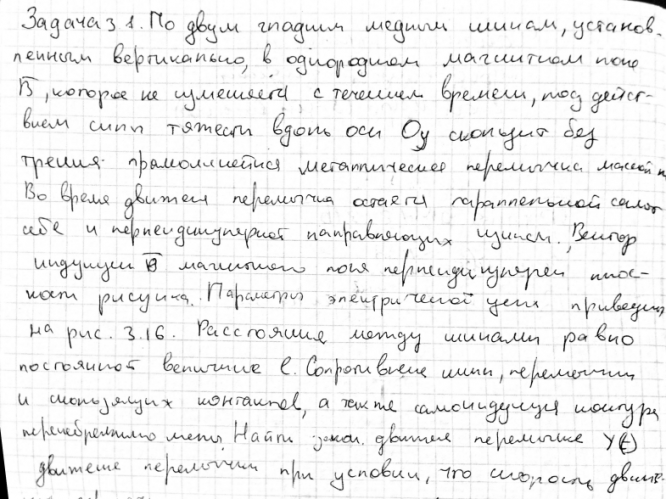 Задача 3 1. По двум гладким медным шинам, установ-
ленным вертикально, в однородном магнитном поле
B, которое не изменяется с течением времени, под дейст-
вием силы тяжести вдоль оси Oy скользит без
трения прямолинейная металлическая перемычка массой m
Во время движения перемычка остается параллельной самой
себе и перпендикулярной направляющих шинам. Вектор
индукции B магнитного поля перпендикулярен плос-
кости рисунка. Параметры электрической цепи приведены
на рис. 3.16. Расстояние между шинами равно
постоянной величине l. Сопротивление шин, перемычки
и скользящих контактов, а также самоиндукция контура
пренебрежимо малы. Найти закон движения перемычки y(t)
движение перемычки при условии, что скорость движе